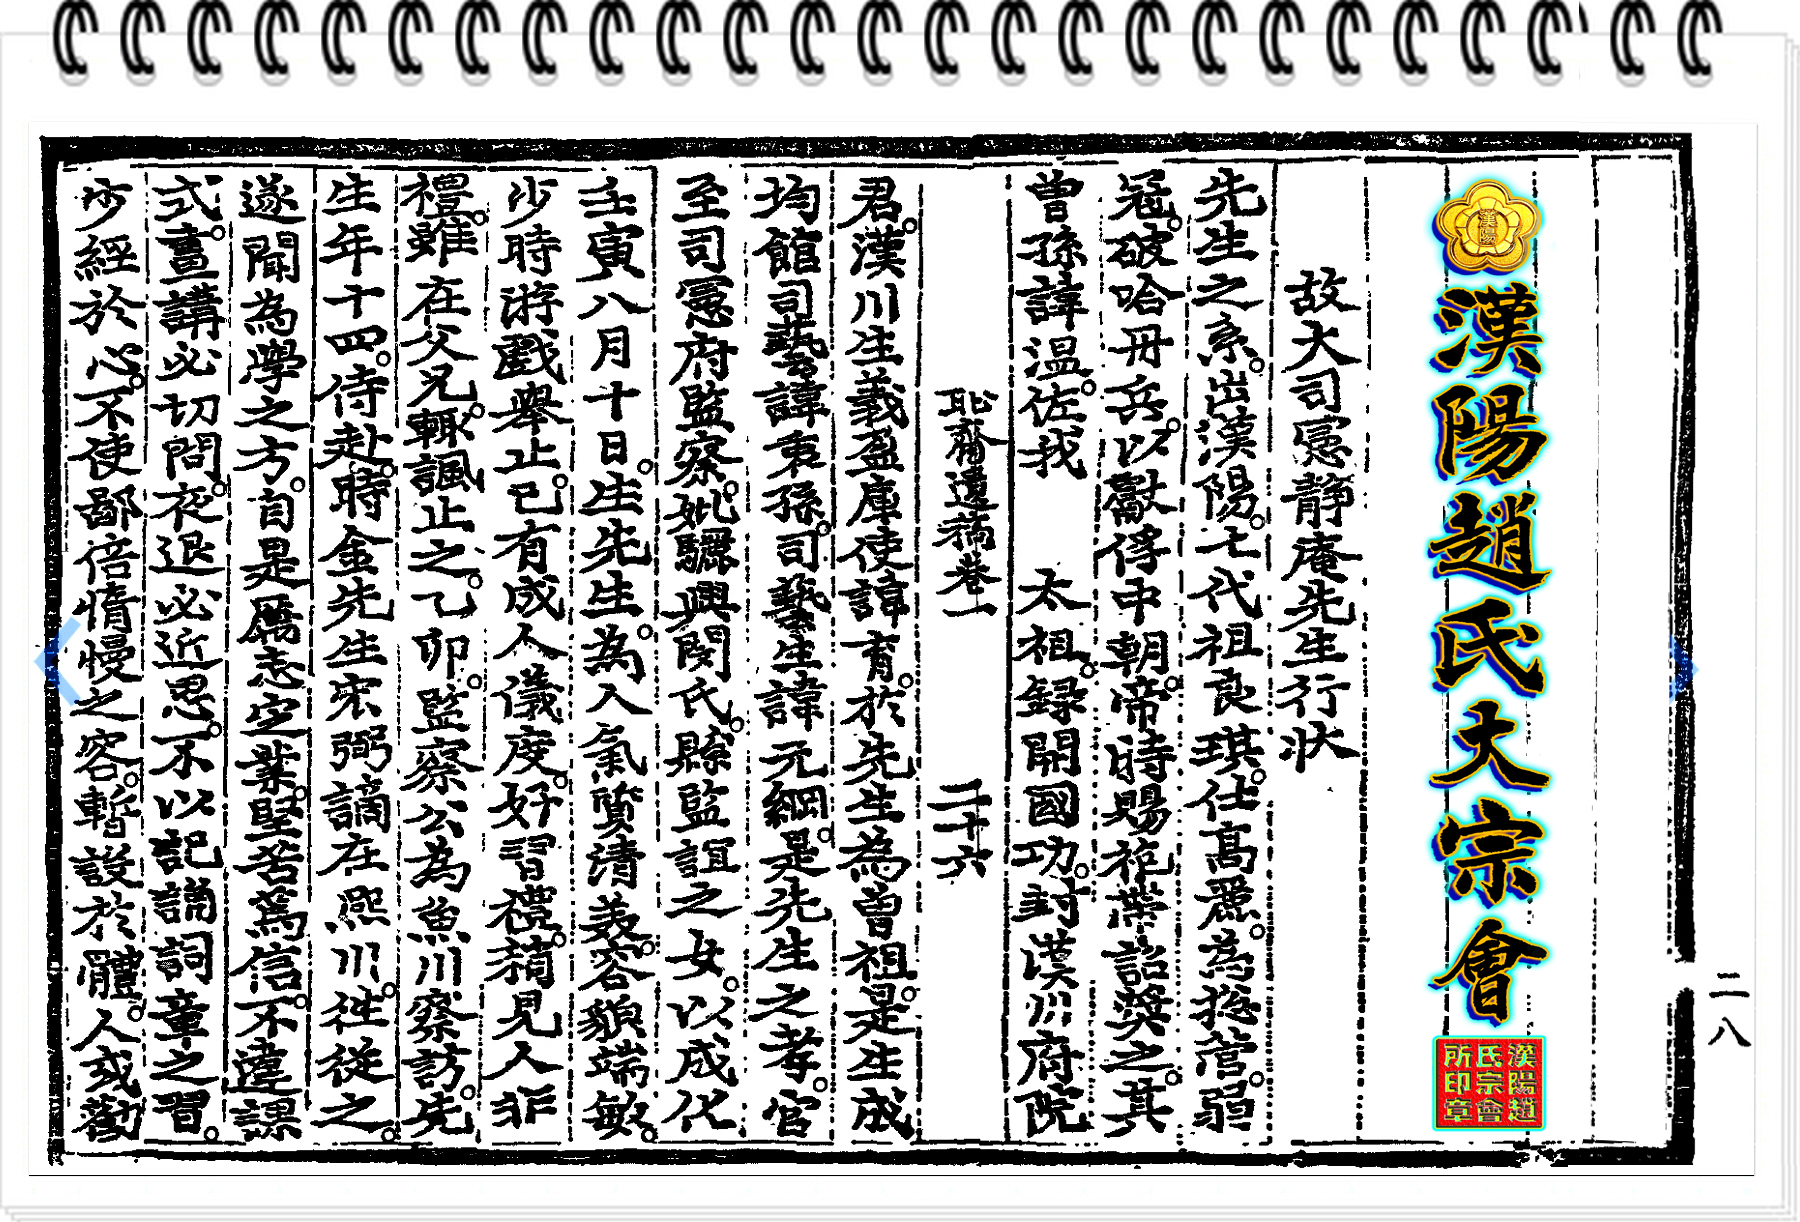 二八
漢陽趙氏大宗會
漢陽趙
氏宗會
所印章
故大司憲靜庵先生行狀
先生之系出漢陽七代祖良琪仕高麗為摠管弱
冠破哈丹兵以獻俘中朝帝時賜袍帶詔奬之其
曾孫諱温佐我 太祖錄開國功封漢川府院
恥齋遺稿卷一 二十六
君漢川生義盈庫使諱育於先生為曾祖是生成
均館司藝諱衷孫司藝生諱元綱是先生之考官
至司憲府監察妣驪興閔氏縣監誼之女以成化
壬寅八月十日生先生為人氣質清美容貌端敏
少時游戲舉止已有成人儀度好習禮稍見人非
禮雖在父兄輒諷止之乙卯監察公為魚川察訪先
生年十四侍赴時金先生宏弼謫在熙川往從之
遂聞為學之方自是厲志定業堅苦篤信不違課
式晝講必切問夜退必近思不以記誦詞章之習
少經於心不使鄙倍惰慢之容暫設於體人或勸